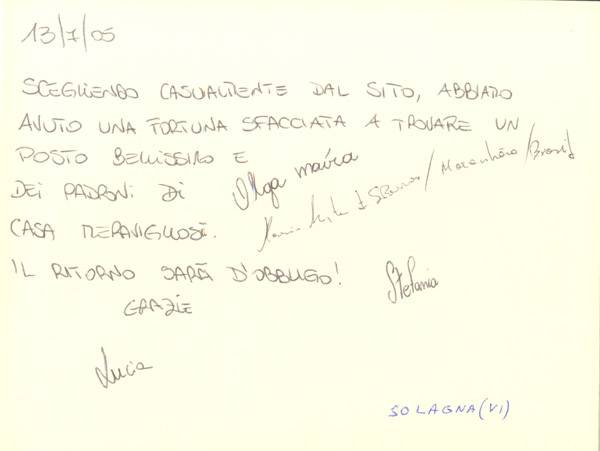 13/7/05
SCEGLIENDO CASUALMENTE DAL SITO, ABBIAMO
AVUTO UNA FORTUNA SFACCIATA A TROVARE UN
POSTO BELLISSIMO E
DEI PADRONI DI
Olga maíra
CASA MERAVIGLIOSI.
Maranhão/Brasil
IL RITORNO SARÀ D'OBBLIGO!
Stefania
GRAZIE
Lucia
SOLAGNA (VI)